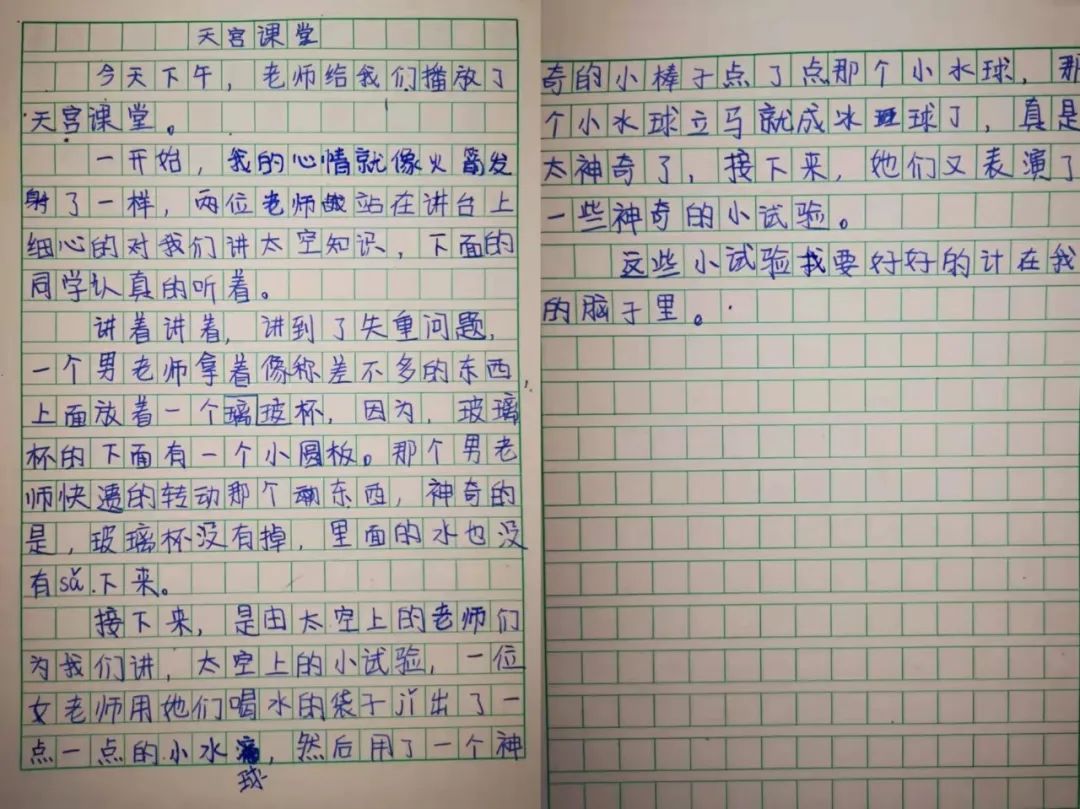 天宫课堂
今天下午，老师给我们播放了
天宫课堂。
一开始，我的心情就像火箭发
射了一样，两位老师站在讲台上
细心的对我们讲太空知识，下面的
同学认真的听着。
讲着讲着，讲到了失重问题，
一个男老师拿着像称差不多的东西，
上面放着一个璃玻杯，因为，玻璃
杯的下面有一个小圆板。那个男老
师快速的转动那个东西，神奇的
是，玻璃杯没有掉，里面的水也没
有sǎ下来。
接下来，是由太空上的老师们
为我们讲，太空上的小试验，一位
女老师用她们喝水的袋子jǐ出了一
点一点的小水球，然后用了一个神
奇的小棒子点了点那个小水球，那
个小水球立马就成冰球了，真是
太神奇了，接下来，她们又表演了
一些神奇的小试验。
这些小试验我要好好的计在我
的脑子里。